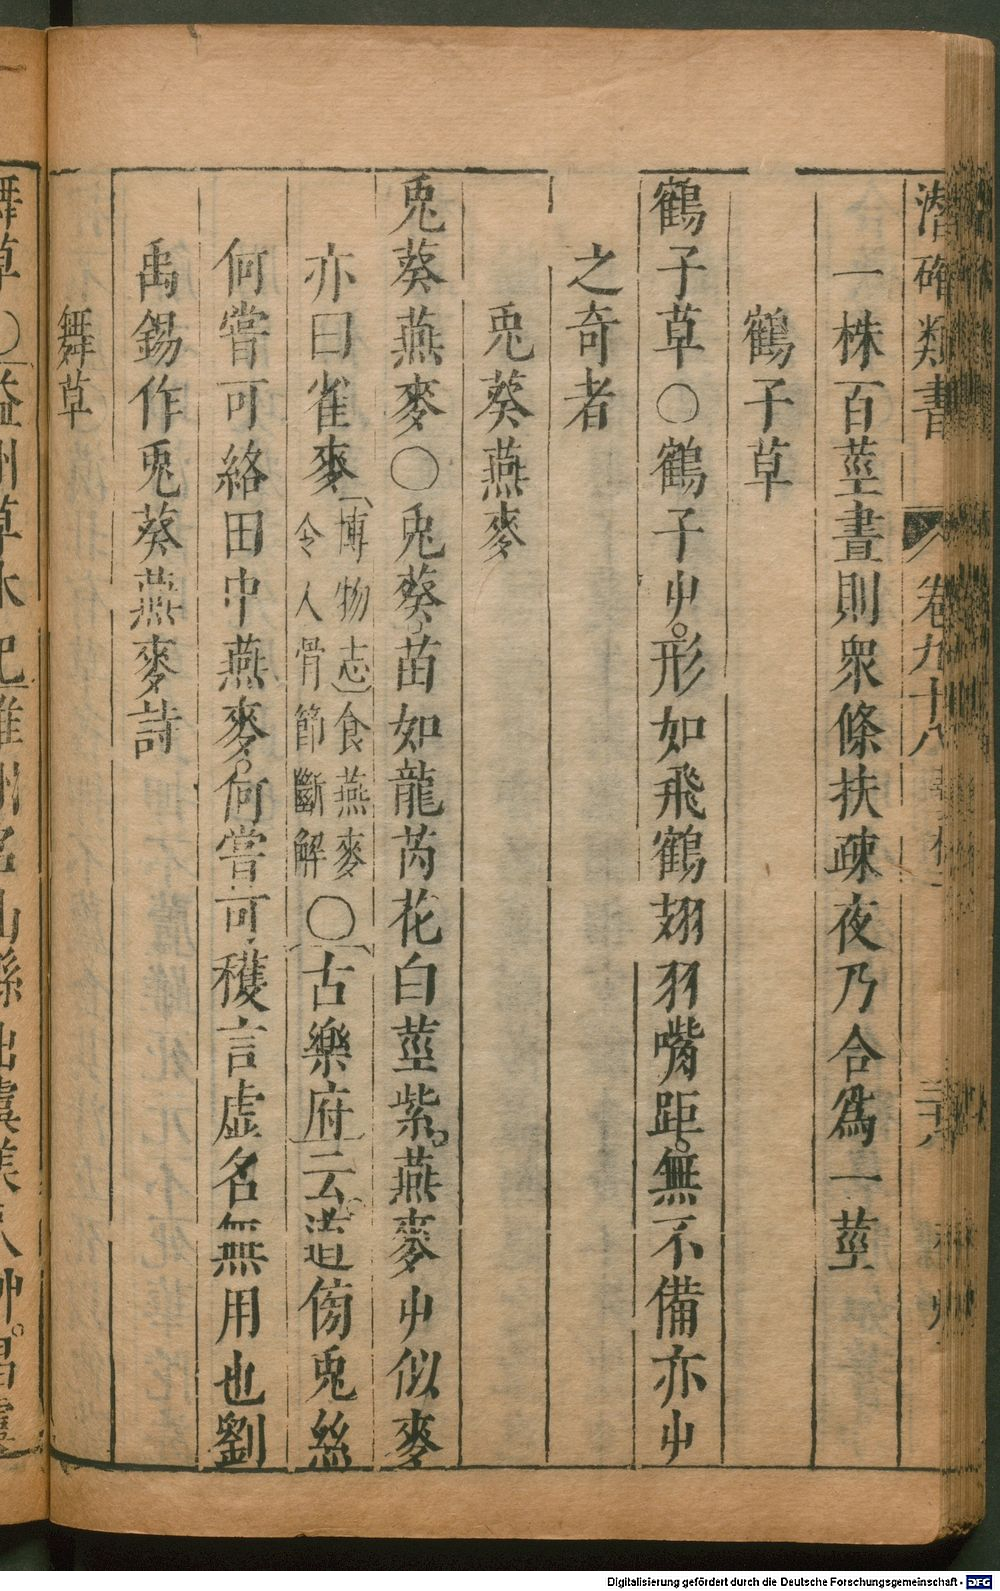 潛確類書 卷九十八 三十八
一株百莖晝則衆條扶疎夜乃合爲一莖
鶴子草
鶴子草〇鶴子屮形如飛鶴翅羽嘴距無不備亦屮
之奇者
兎葵燕麥
兎葵燕麥〇兎葵苗如龍芮花白莖紫燕麥屮似麥
亦曰雀麥
博物志食燕麥
令人骨節斷解
〇古樂府云道傍兎絲
何嘗可絡田中燕麥何嘗可穫言虛名無用也劉
禹錫作兎葵燕麥詩
舞草
Digitalisierung gefördert durch die Deutsche Forschungsgemeinschaft - DFG